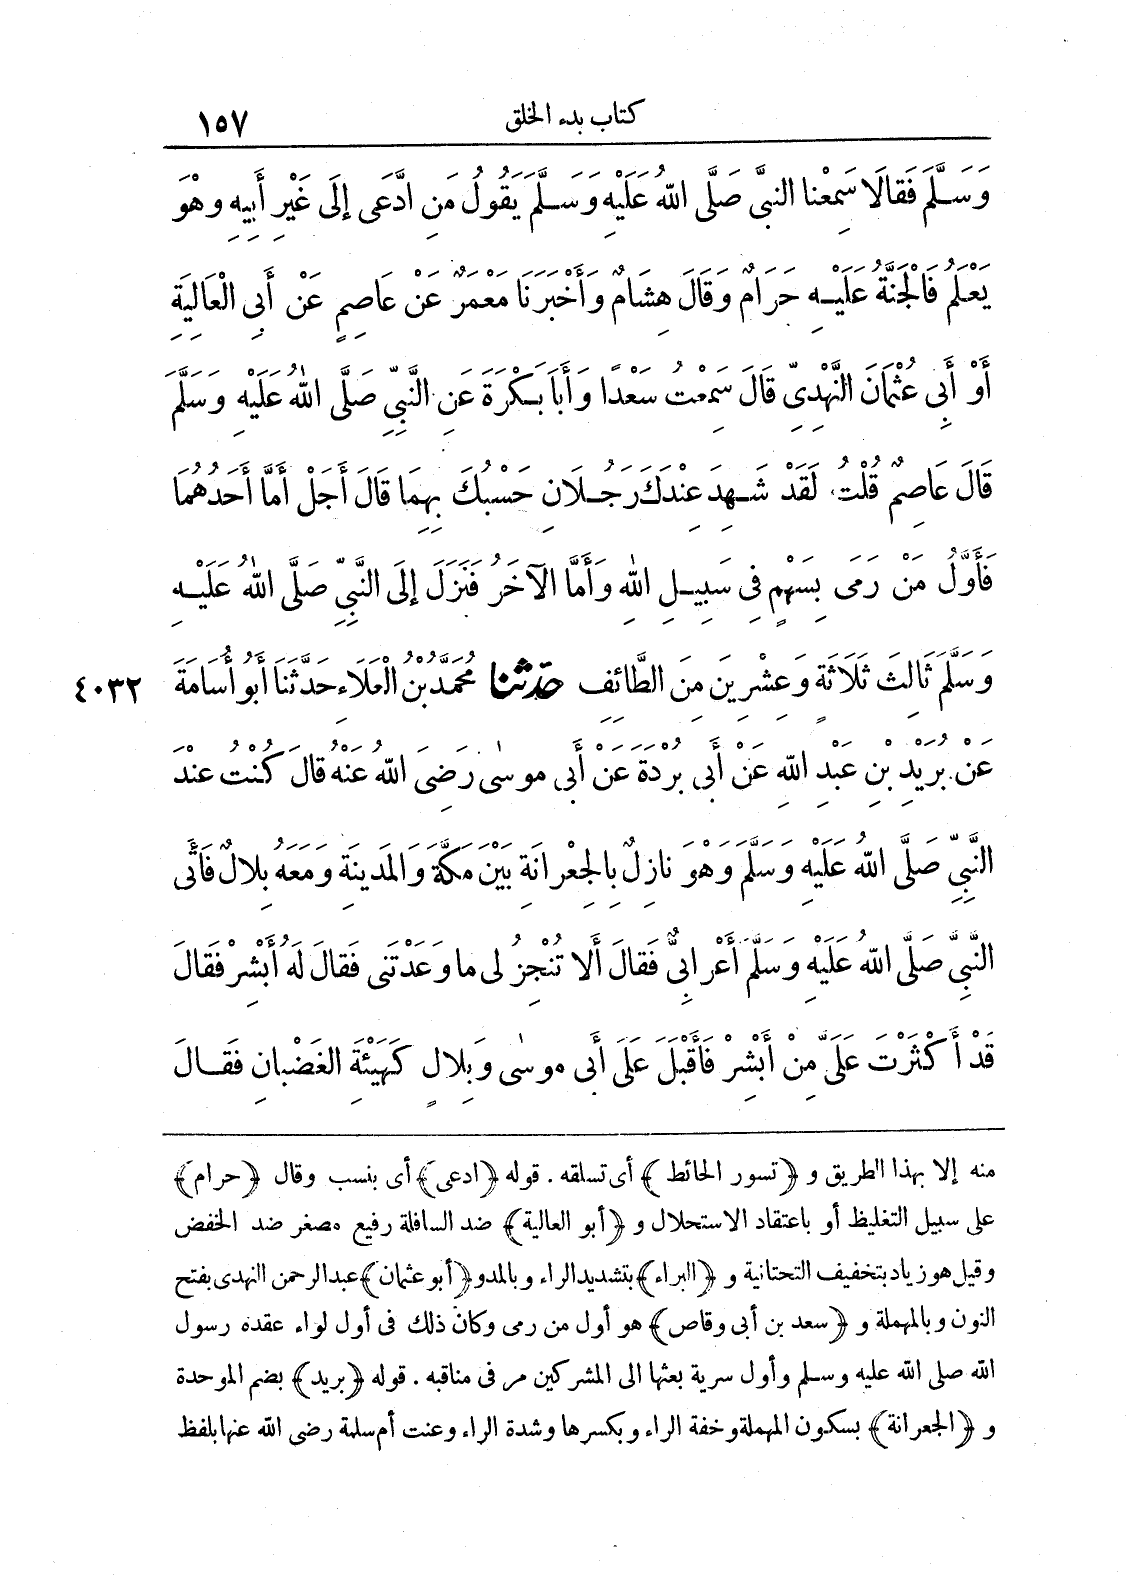 كتاب بدء الخلق ١٥٧
وَسَلَّمَ فَقَالَا سَمِعْنا النبىَّ صَلَّى اللهُ عَلَيْهِ وَسَلَّمَ يَقُولُ مَنِ ادَّعَى إلَى غَيْرِ أَبِيهِ وهُوَ
يَعْلَمُ فَالْجَنَّةُ عَلَيْهِ حَرَامٌ وقَالَ هِشَامٌ وأَخْبَرَنَا مَعْمَرٌ عَنْ عَاصِمٍ عَنْ أَبِى الْعَالِيَةِ
أَوْ أَبِى عُثْمَانَ النَّهْدِىِّ قَالَ سَمِعْتُ سَعْدًا وَأَبَا بَكْرَةَ عَنِ النَّبِىِّ صَلَّى اللهُ عَلَيْهِ وَسَلَّمَ
قَالَ عَاصِمٌ قُلْتُ لَقَدْ شَهِدَ عِنْدَكَ رَجُلَانِ حَسْبُكَ بِهِمَا قَالَ أَجَلْ أَمَّا أَحَدُهُمَا
فَأَوَّلُ مَنْ رَمَى بِسَهْمٍ فِى سَبِيلِ اللهِ وَأَمَّا الآخَرُ فَنَزَلَ إلَى النَّبِىِّ صَلَّى اللهُ عَلَيْهِ
وَسَلَّمَ ثَالِثَ ثَلَاثَةٍ وَعِشْرِينَ مِنَ الطَّائِفِ حدّثنا مُحَمَّدُ بْنُ الْعَلَاءِ حَدَّثَنَا أَبُو أُسَامَةَ ٤٠٣٢
عَنْ بُرَيْدِ بْنِ عَبْدِ اللهِ عَنْ أَبِى بُرْدَةَ عَنْ أَبِى مُوسَى رَضِىَ اللهُ عَنْهُ قَالَ كُنْتُ عِنْدَ
النَّبِىِّ صَلَّى اللهُ عَلَيْهِ وَسَلَّمَ وَهْوَ نَازِلٌ بِالْجِعْرَانَةِ بَيْنَ مَكَّةَ وَالْمَدِينَةِ وَمَعَهُ بِلَالٌ فَأَتَى
النَّبِىَّ صَلَّى اللهُ عَلَيْهِ وَسَلَّمَ أَعْرَابِىٌّ فَقَالَ أَلا تُنْجِزُ لِى مَا وَعَدْتَنِى فَقَالَ لَهُ أَبْشِرْ فَقَالَ
قَدْ أَكْثَرْتَ عَلَىَّ مِنْ أَبْشِرْ فَأَقْبَلَ عَلَى أَبِى مُوسَى وَبِلَالٍ كَهَيْئَةِ الْغَضْبَانِ فَقَالَ
منه إلا بهذا الطريق و ﴿تسور الحائط﴾ أى تسلقه. قوله ﴿ادعى﴾ أى ينسب وقال ﴿حرام﴾
على سبيل التغليظ أو باعتقاد الاستحلال و ﴿أبو العالية﴾ ضد السافلة رفيع مصغر ضد الخفض
وقيل هو زياد بتخفيف التحتانية و ﴿البراء﴾ بتشديد الراء وبالمد و ﴿أبو عثمان﴾ عبد الرحمن النهدى بفتح
النون وبالمهملة و ﴿سعد بن أبى وقاص﴾ هو أول من رمى وكان ذلك فى أول لواء عقده رسول
الله صلى الله عليه وسلم وأول سرية بعثها الى المشركين مر فى مناقبه. قوله ﴿بريد﴾ بضم الموحدة
و ﴿الجعرانة﴾ بسكون المهملة وخفة الراء وبكسرها وشدة الراء وعنت أم سلمة رضى الله عنها بلفظ